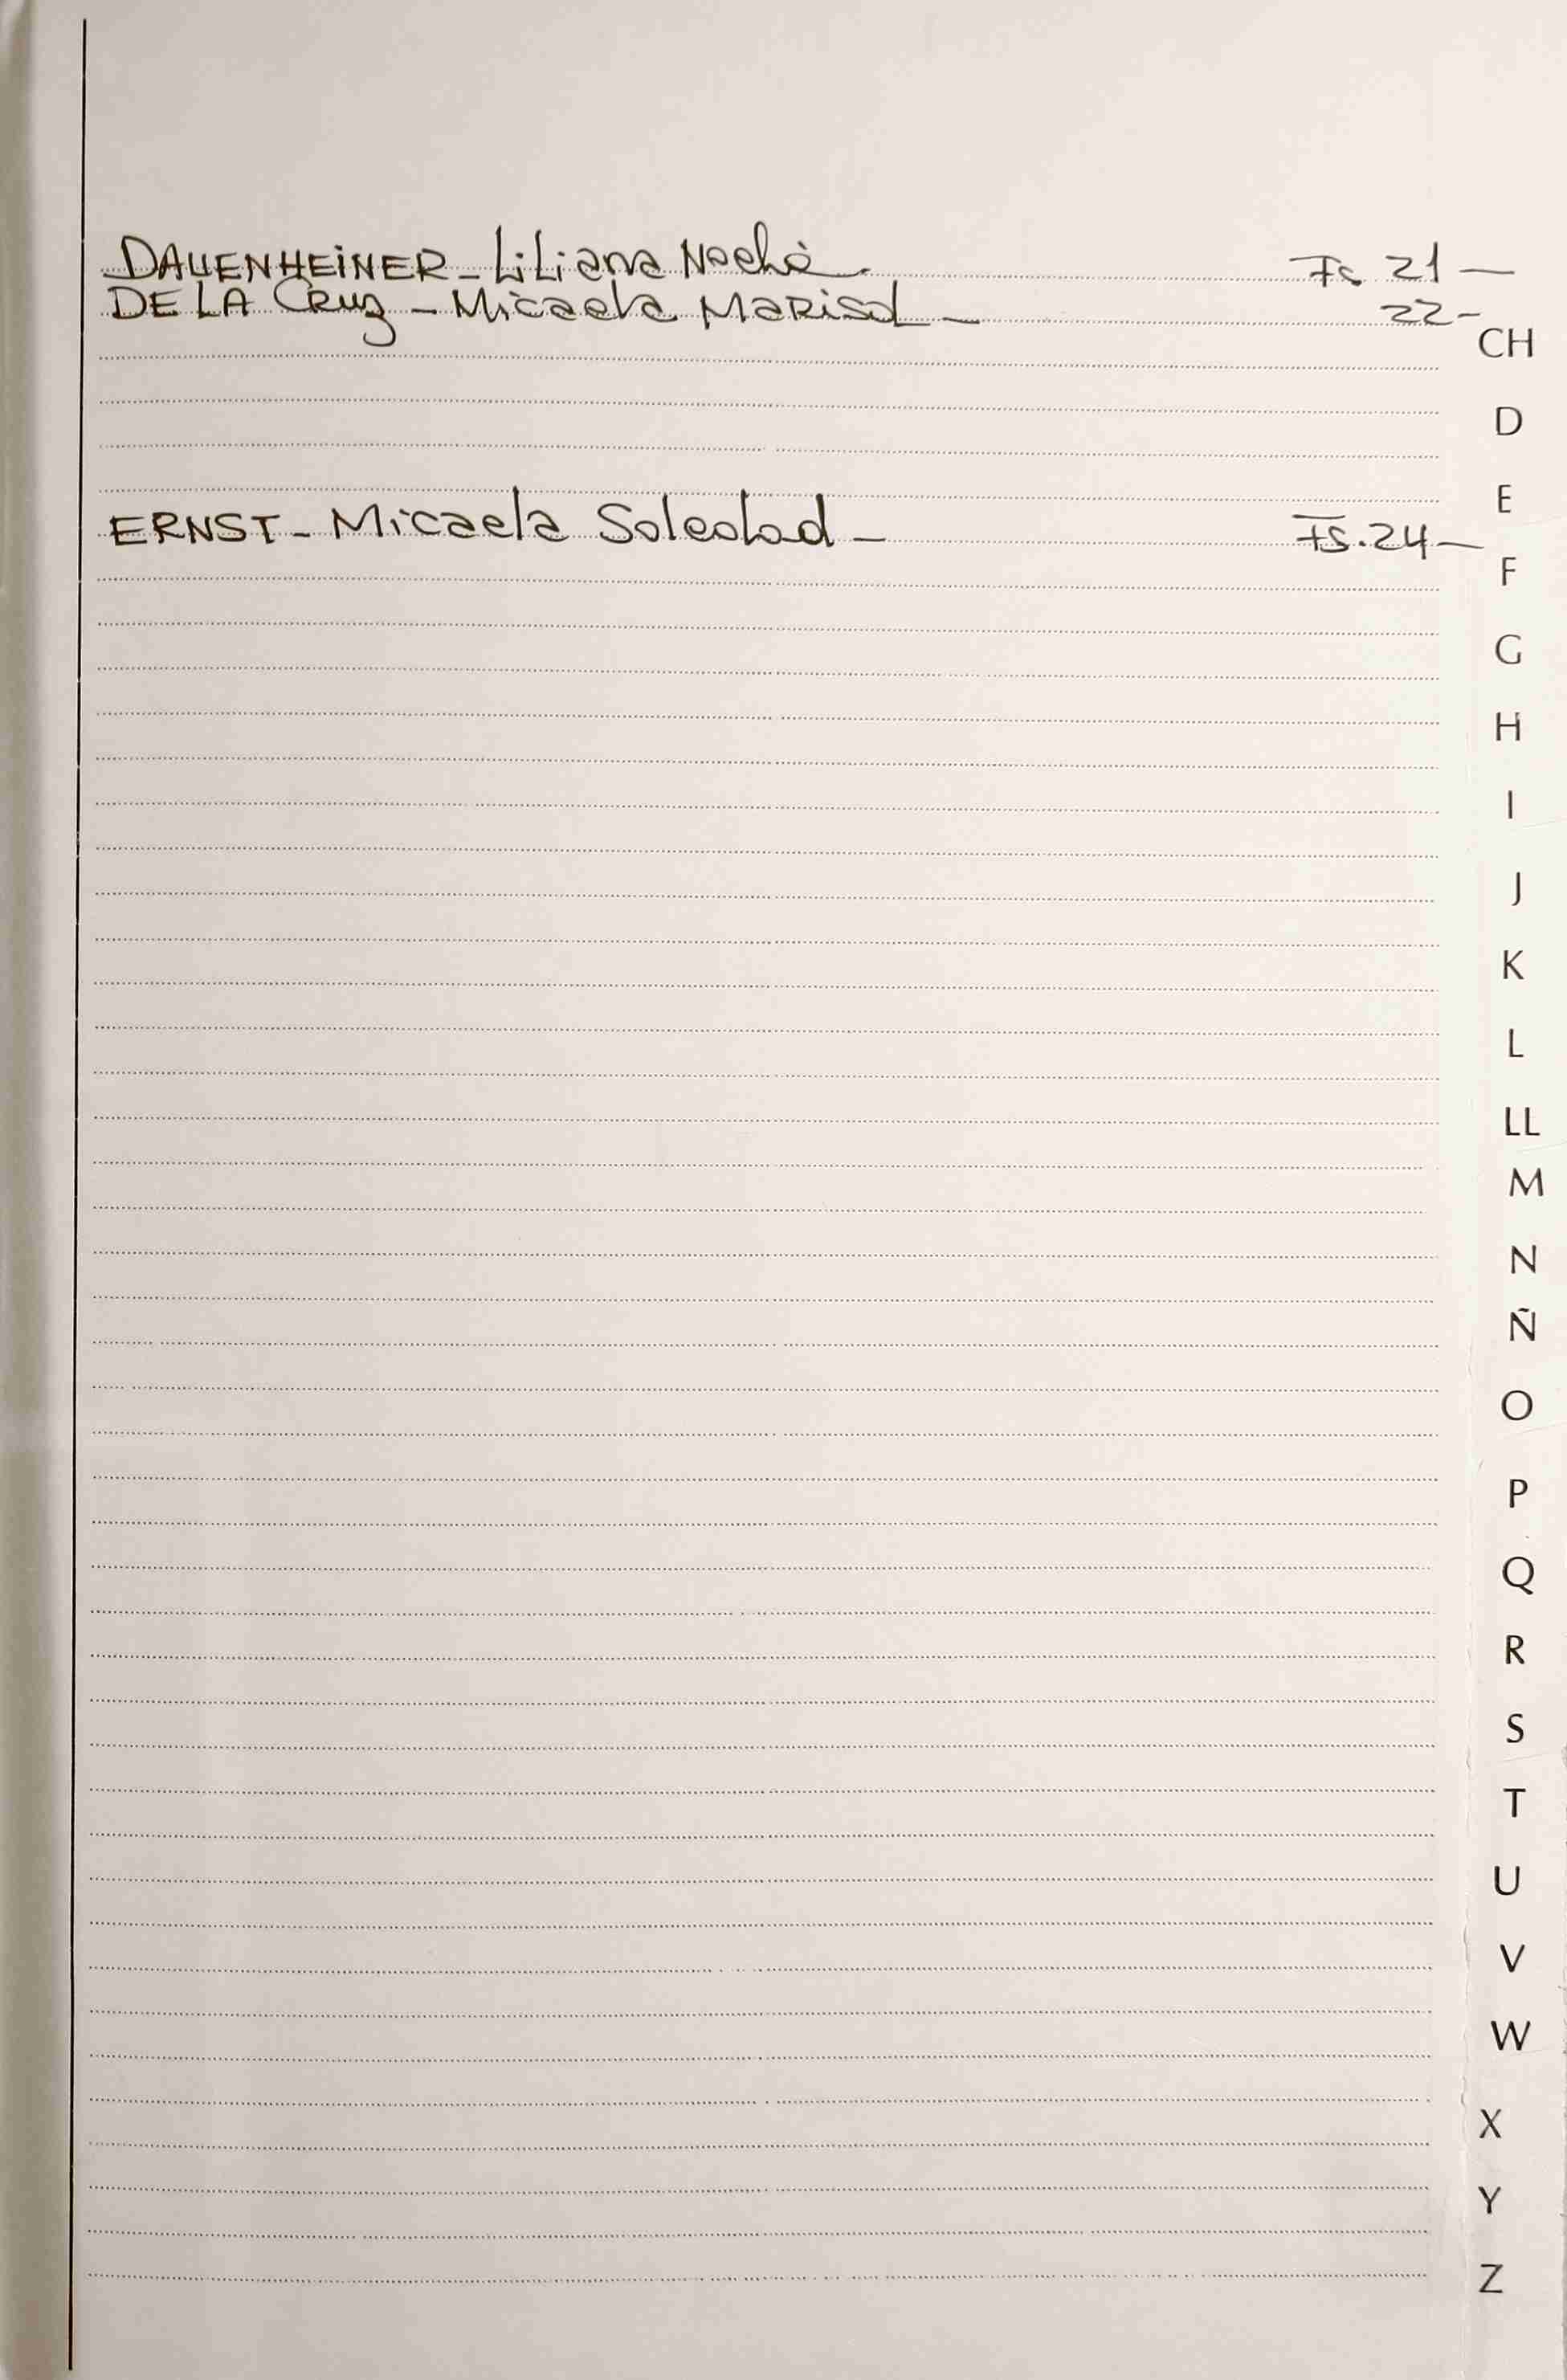 DAUENHEINER - Liliana Noehè. Fs. 21 -
DE LA CRUZ - Micaela Marisol - 22 -
CH
D
E
ERNST - Micaela Soledad - Fs. 24 -
F
G
H
I
J
K
L
LL
M
N
Ñ
O
P
Q
R
S
T
U
V
W
X
Y
Z